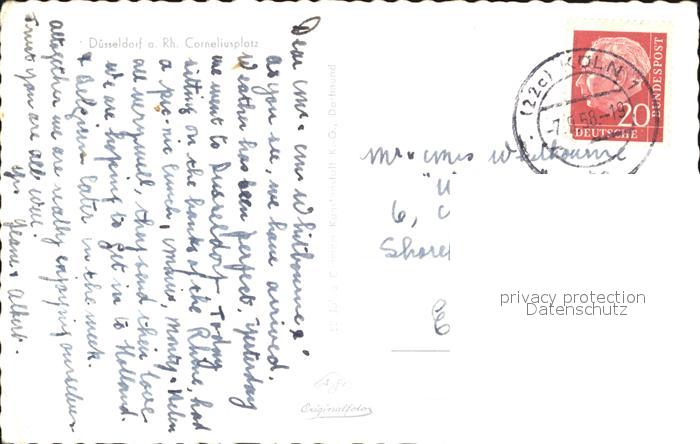 Düsseldorf a. Rh. Corneliusplatz
Dear Mr & Mrs Whitbourne &
as you see, we have arrived.
Weather has been perfect, yesterday
we went to Dusseldorf. Today
sitting on the banks of the Rhine, had
a picnic lunch, Monty & Helen
all very well, they send their love
we are hoping to get in to Holland
& Belgium later in the week.
altogether we are really enjoying ourselves
Trust you are all well.
Jean & Albert.
Dortmund
Originalfoto
(22c) KÖLN 1
-7.9.58.-18
20
DEUTSCHE
BUNDESPOST
Mr & Mrs Whitbourne
6,
Shore
privacy protection
Datenschutz